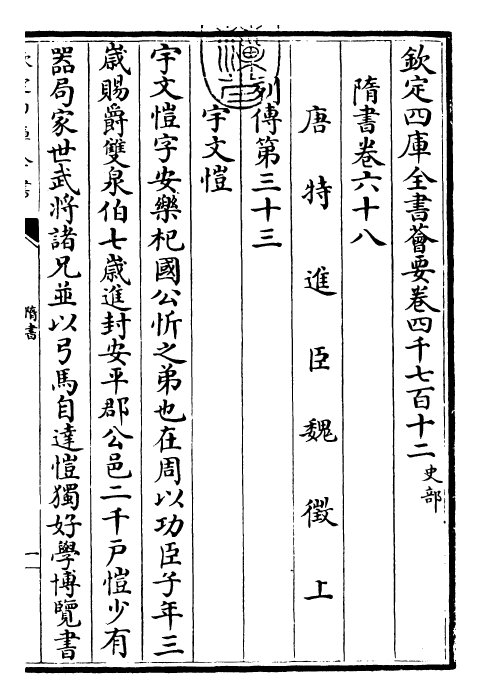 欽定四庫全書薈要卷四千七百十二 史部
隋書卷六十八
唐特進臣魏徵上
列傳第三十三
宇文愷
宇文愷字安樂杞國公忻之弟也在周以功臣子年三
歲賜爵雙泉伯七歲進封安平郡公邑二千戶愷少有
器局家世武將諸兄並以弓馬自達愷獨好學博覽書
隋書
一